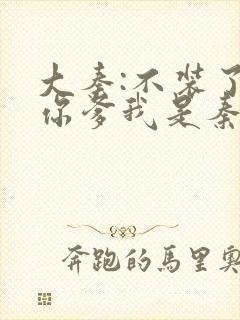 大秦:不装了
你爹我是秦
奔跑的馬里奧